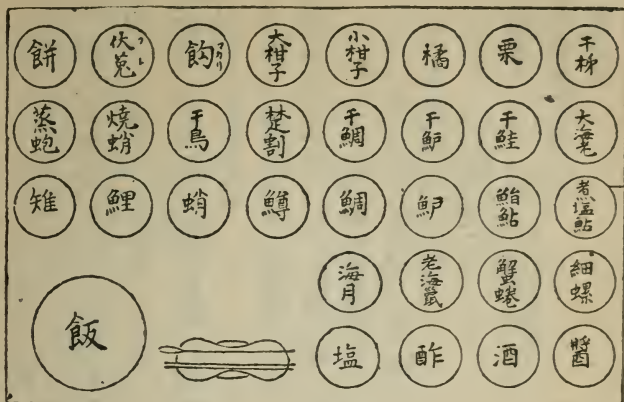 餅
伏兎 フト
マカリ
大柑子
小柑子
橘
栗
干柹
蒸蚫
燒蛸
干鳥
楚割
干鯛
干魲
干鮭
大海老
雉
鯉
蛸
鱒
鯛
魲
鮨鮎
煮塩鮎
海月
老海鼠
蟹蜷
細螺
飯
塩
酢
酒
醬